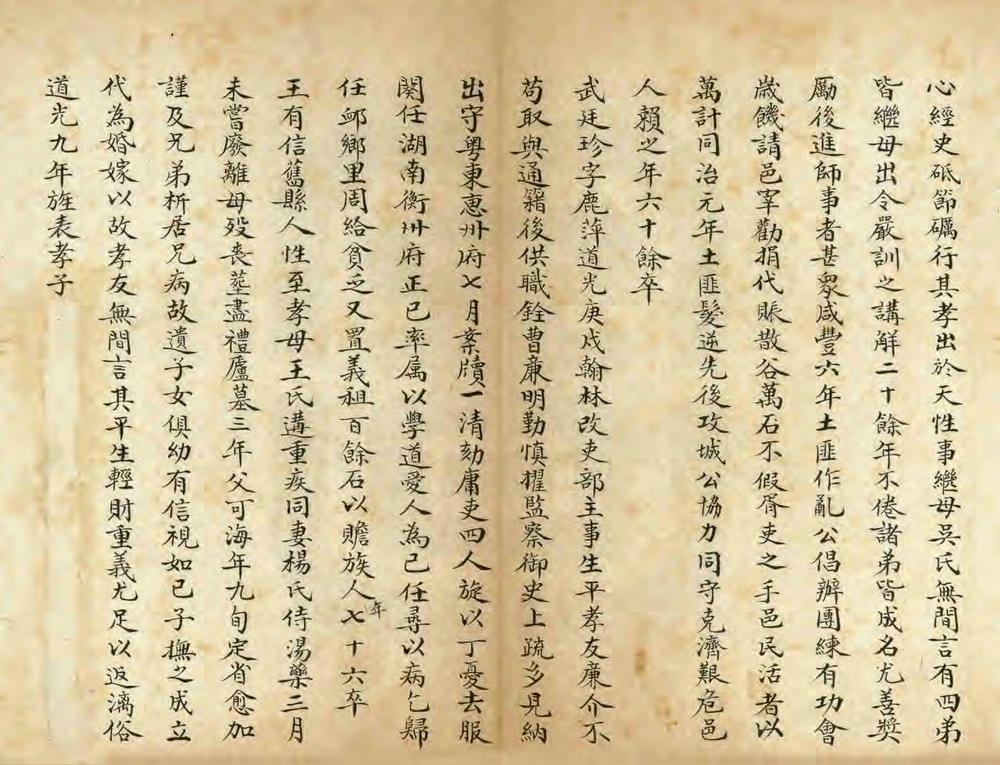 心經史砥節礪行其孝出於天性事繼母吳氏無間言有四弟
皆繼母出令嚴訓之講解二十餘年不倦諸弟皆成名尤善奬
勵後進師事者甚衆咸豐六年土匪作亂公倡辦團練有功會
歲饑請邑宰勸捐代賑散谷萬石不假胥吏之手邑民活者以
萬計同治元年土匪髮逆先後攻城公協力同守克濟艱危邑
人賴之年六十餘卒
武廷珍字鹿萍道光庚戍翰林改吏部主事生平孝友廉介不
苟取與通籍後供職銓曹廉明勤慎擢監察御史上疏多見納
出守粤東惠州府七月案牘一清劾庸吏四人旋以丁憂去服
闋任湖南衡州府正已率属以學道愛人為已任尋以病乞歸
任邺鄉里周給貧乏又置義租百餘石以贍族人年七十六卒
王有信舊縣人性至孝母王氏遘重疾同妻楊氏侍湯藥三月
未嘗廢離母殁喪葬盡禮廬墓三年父可海年九旬定省愈加
謹及兄弟析居兄病故遺子女俱幼有信視如已子撫之成立
代為婚嫁以故孝友無間言其平生輕財重義尤足以返漓俗
道光九年旌表孝子